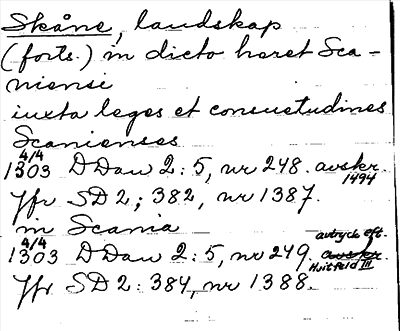 Skåne, landskap
(forts.) in dicto haret Sca-
niensi
iuxta leges et consuetudines
Scanienses
4/4
1303 DDan 2:5, nr 248. avskr.
1494
Jfr SD 2; 382, nr 1387.
in Scania
4/4
1303 DDan 2:5, nr 249. avtryck eft. avskr.
Huitfeld III
Jfr SD 2: 384, nr 1388.